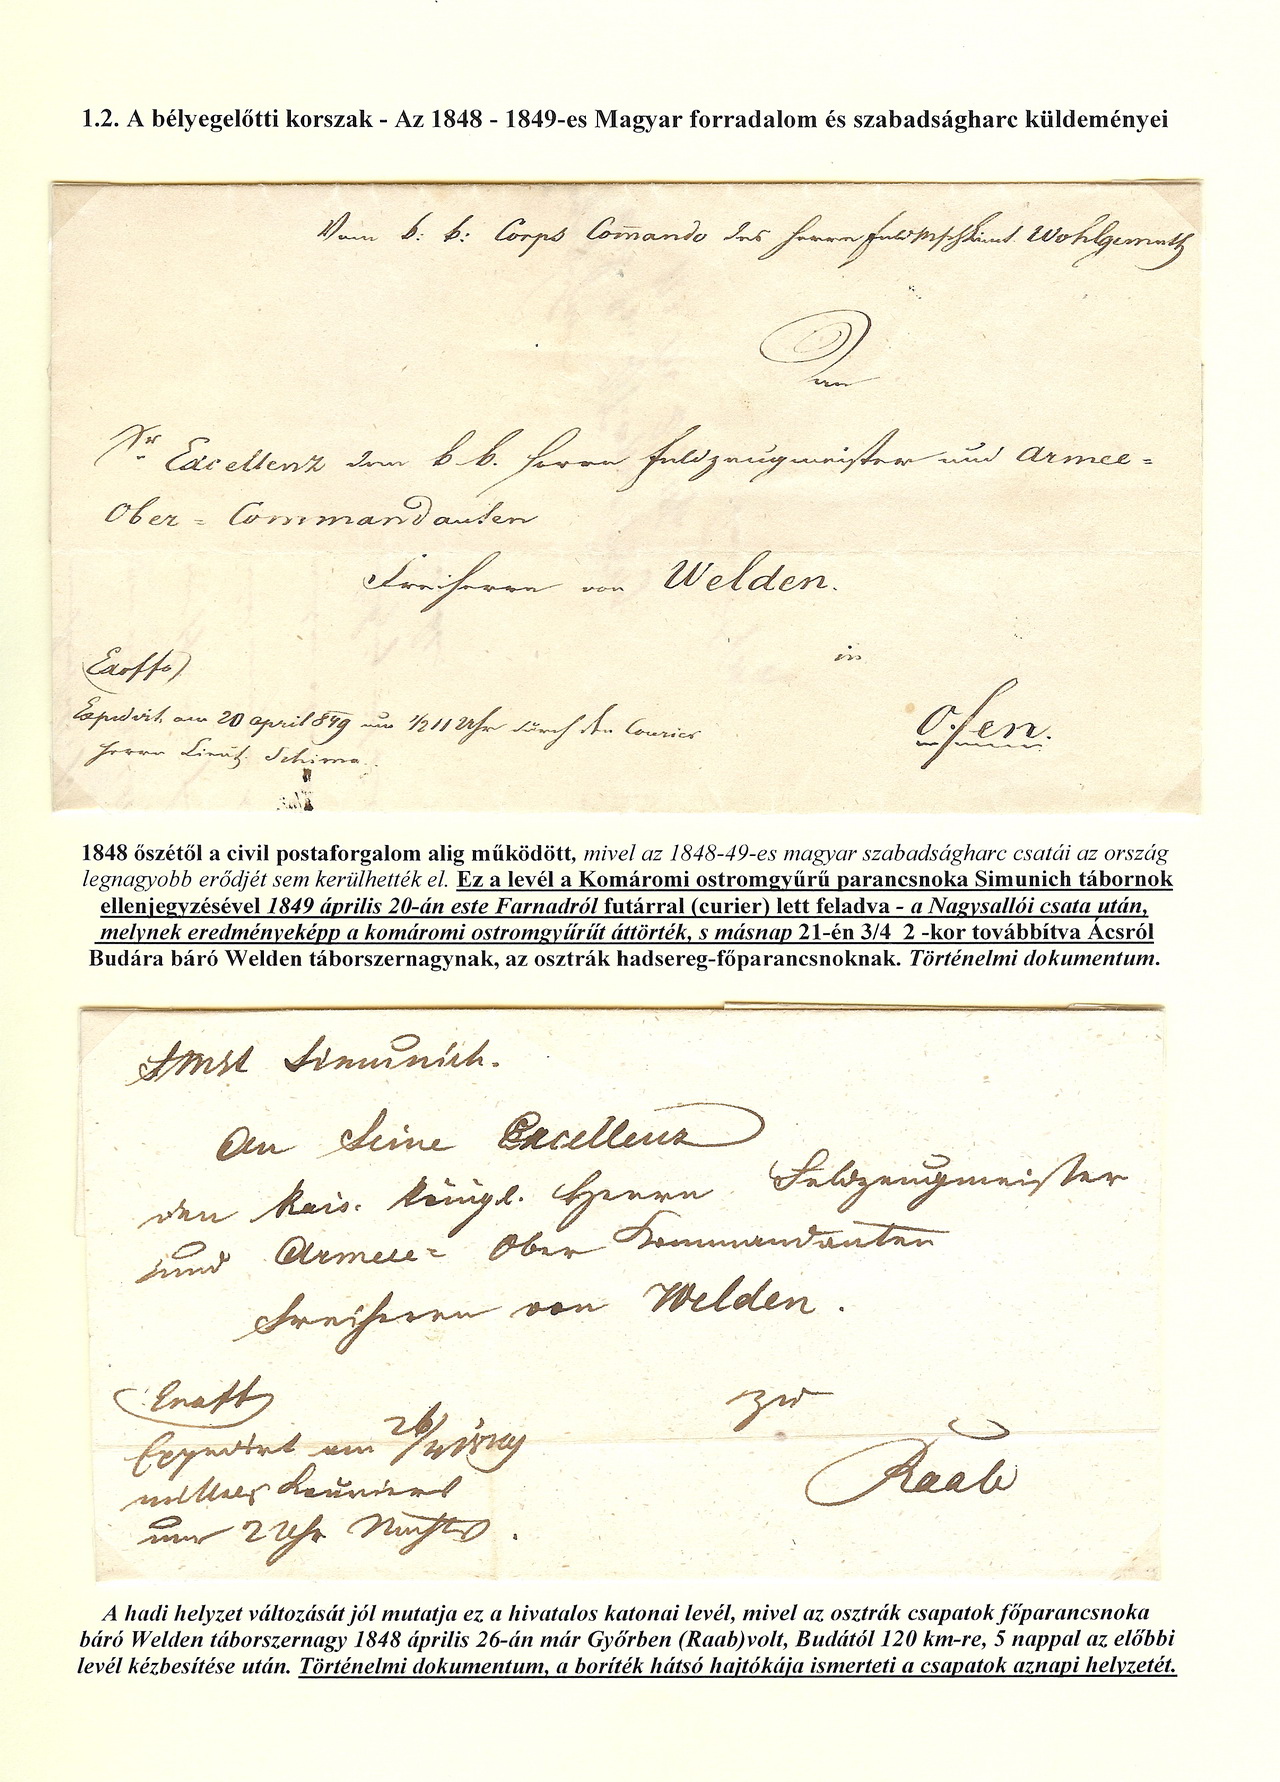 1.2. A bélyegelőtti korszak - Az 1848 - 1849-es Magyar forradalom és szabadságharc küldeményei
Vom k: k: Corps Commando des Herrn Wohlgemuth
An
Sr Excellenz dem k. k. Herrn Feldzeugmeister und Armee=
Ober = Commandanten
Freiherrn von Welden.
in
Expedirt am 20 April 849 um 1/2 11 Uhr durch den Courier
Ofen.
Herrn Lieut. Schima.
1848 őszétől a civil postaforgalom alig működött, mivel az 1848-49-es magyar szabadságharc csatái az ország
legnagyobb erődjét sem kerülhették el. Ez a levél a Komáromi ostromgyűrű parancsnoka Simunich tábornok
ellenjegyzésével 1849 április 20-án este Farnadról futárral (curier) lett feladva - a Nagysallói csata után,
melynek eredményeképp a komáromi ostromgyűrűt áttörték, s másnap 21-én 3/4 2 -kor továbbítva Ácsról
Budára báró Welden táborszernagynak, az osztrák hadsereg-főparancsnoknak. Történelmi dokumentum.
Simunich.
An Seine Excellenz
den kais. königl. Herrn Feldzeugmeister
und Armee= Ober Kommandanten
Freiherrn von Welden.
zu
Expedirt am 26/4
Raab
mittels Couriers
um 2 Uhr Nachts.
A hadi helyzet változását jól mutatja ez a hivatalos katonai levél, mivel az osztrák csapatok főparancsnoka
báró Welden táborszernagy 1848 április 26-án már Győrben (Raab)volt, Budától 120 km-re, 5 nappal az előbbi
levél kézbesítése után. Történelmi dokumentum, a boríték hátsó hajtókája ismerteti a csapatok aznapi helyzetét.